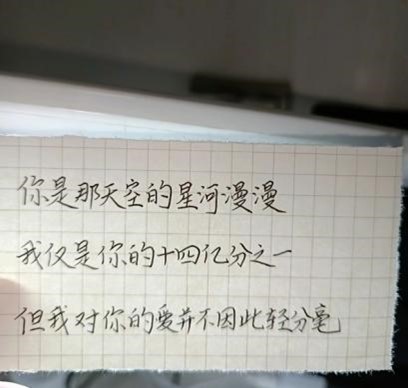 你是那天空的星河漫漫
我仅是你的十四亿分之一
但我对你的爱并不因此轻分毫